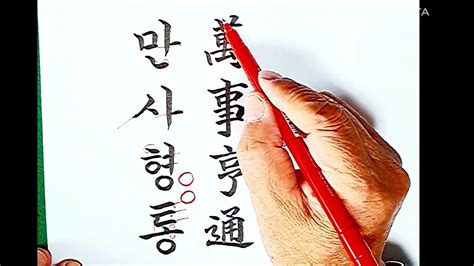 萬事亨通
만사형통